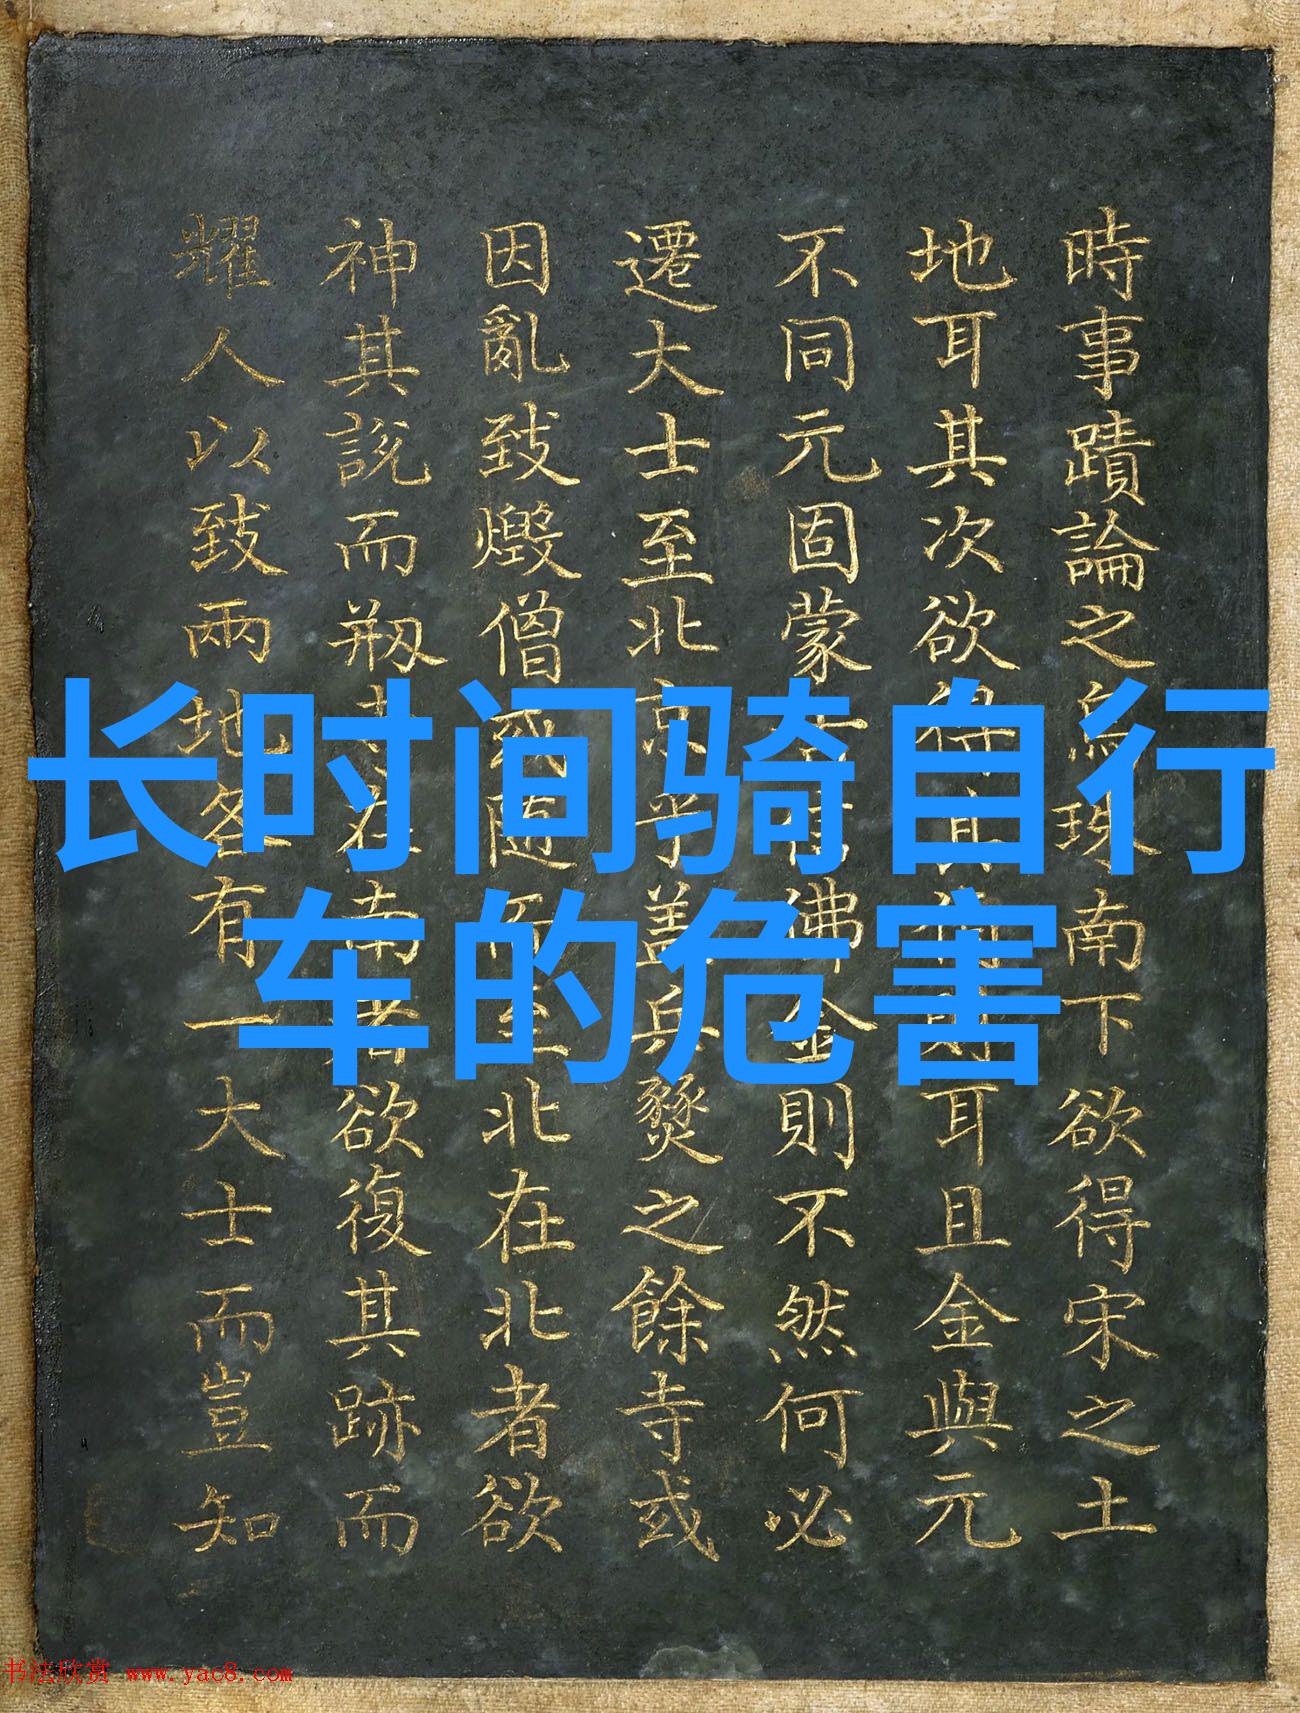 長时间骑自行
车的危害
時事蹟論之烏珠南下欲得宋之土
地耳其次欲得其耳且金與元
不同元固蒙佛金則不然何必
遷大士至北京乎蓋兵燹之餘寺或
因亂致燬僧或随而至北在北者欲
神其說而刱在南者欲復其跡而
耀人以致兩地各有一大士而豈知
书法欣赏 www.yac8.com